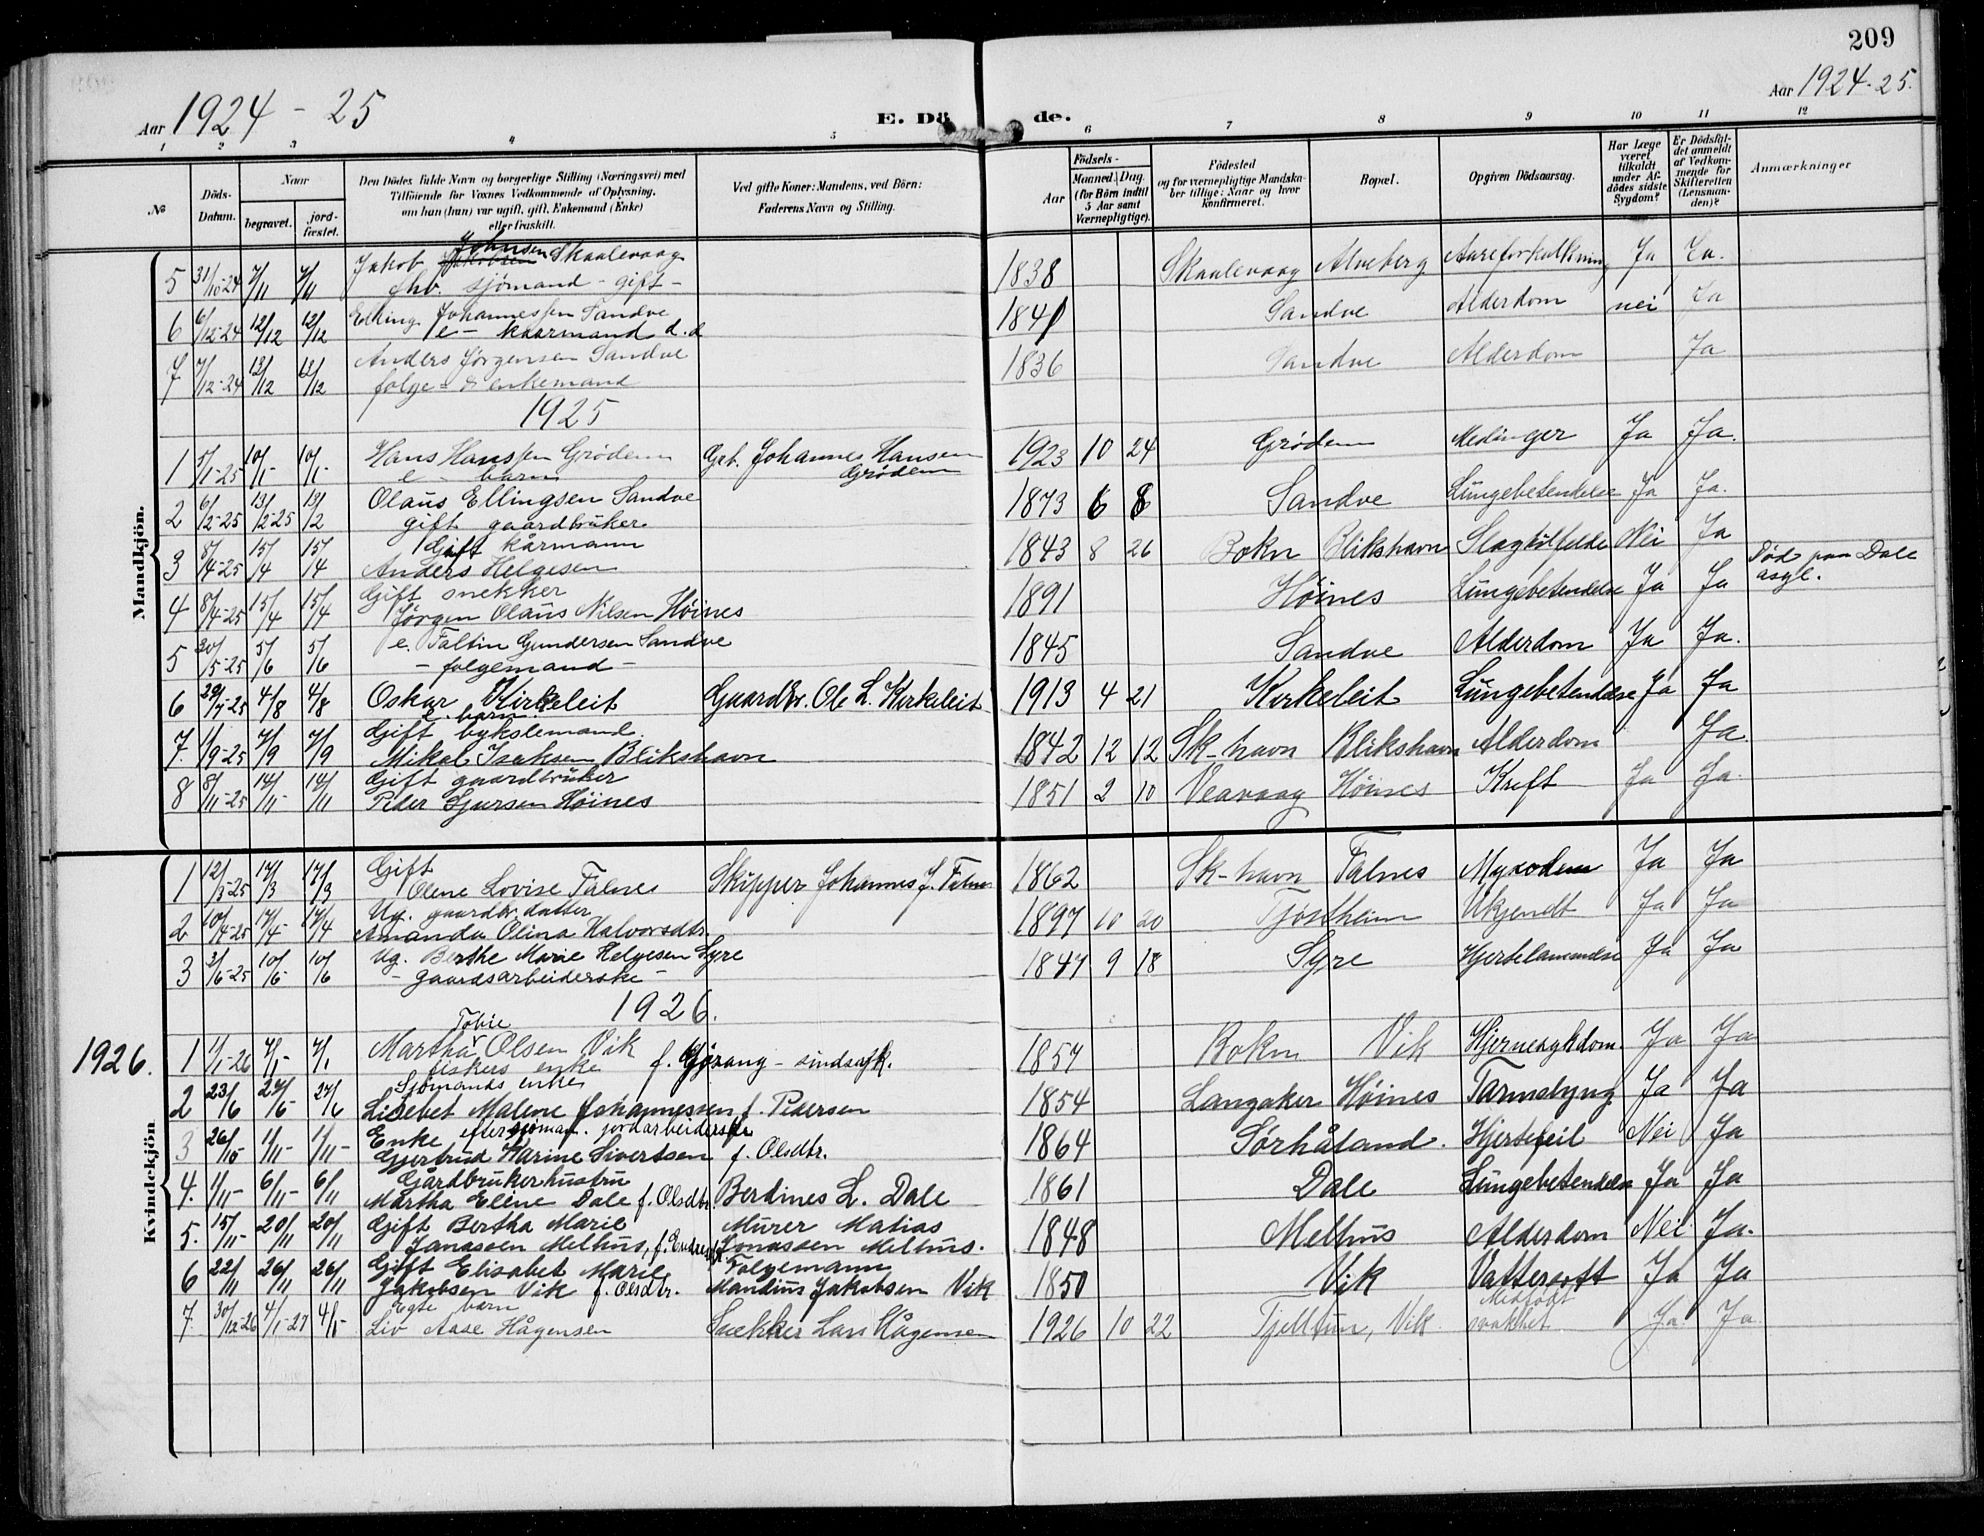 209
Aar 1924 - 25
E. Dö de.
Aar 1924-25.
1 2 3 4 5 6 7 8 9 10 11 12
No
Döds-Datum.
Naar
begravet.
jord-fæstet.
Den Dödes fulde Navn og borgerlige Stilling (Næringsvei) med
Tilföiende for Voxnes Vedkommende af Oplysning,
om han (hun) var ugift, gift, Enkemand (Enke)
eller fraskilt.
Ved gifte Koner: Mandens, ved Börn:
Faderens Navn og Stilling.
Födsels-
Aar
Maaned. Dag.
(for Börn indtil
5 Aar samt
Værnepligtige).
Födested
og for værnepligtige Mandska-
ber tillige: Naar og hvor
konfirmeret.
Bopæl.
Opgiven Dödsaarsag.
Har Læge
været
tilkaldt
under Af-
dödes sidste
Sygdom?
Er Dödsfal-
det anmeldt
af Vedkom-
mende for
Skifteretten
(Lensman-
den)?
Anmærkninger
Mandkjön.
5 31/10-24 7/11 7/11 Jakob Johnsen Skaalevaag 1838 Skaalevaag Alveberg Aareforkalkning Ja Ja.
fhv. sjömand - gift -
6 6/12-24 12/12 12/12 Elling Johannessen Sandve 1841 Sandve Alderdom nei Ja
e - kaarmand d.d
7 7/12-24 13/12 13/12 Anders Jørgensen Sandve 1836 Sandve Alderdom Ja
folge- & enkemand
1925
1 5/1-25 10/1- 10/1- Hans Hanssen Grødem Grb. Johannes Hansen Grødem 1923 10 24 Grødem Ja Ja.
e - barn
2 6/2-25 13/2-25 13/2 Olaus Ellingsen Sandve 1873 6 8 Sandve Lungebetendelse Ja Ja.
gift gaardbruker
3 8/4-25 15/4 15/4 Gift kårmann 1843 8 26 Bokn Blikshavn Slagtilfelde Nei Ja
Anders Helgesen
Död paa Dale
asyl.
4 8/4-25 15/4 15/4 Gift snekker 1891 Høines Lungebetendelse Ja Ja
Jörgen Olaus Nilsen Høines
5 20/5-25 5/6 5/6 e. Faltin Gundersen Sandve 1845 Sandve Alderdom Ja Ja.
- folgemand -
6 29/7-25 4/8 4/8 Oskar Kirkeleit Gaardbr. Ole L. Kirkeleit 1913 4 21 Kirkeleit Lungebetendelse Ja Ja
e. barn
7. 1/9-25 7/9 7/9 Gift bykslemand. 1842 12 12 Sk-havn Blikshavn Alderdom Ja.
Mikal Isaksen, Blikshavn
8 8/11-25 14/11- 14/11 Gift gaardbruker 1851 2 10 Veavaag Höines Kreft Ja Ja.
Peder Sjursen Höines
Kvindekjön
1 12/3-25 17/3 17/3 Gift Skipper Johannes J. Falnes 1862 Sk-havn Falnes Myxødem Ja Ja
Olene Lovise Falnes
2 10/4-25 17/4- 17/4 Ug. gaardbr. datter 1897 10 20 Tjøstheim Ukjendt Ja Ja
Amanda Olina Halvorsdtr.
3 3/6-25 10/6- 10/6 Ug. Berthe Marie Helgesen Syre 1847 9 18 Syre Hjertelammelse Ja Ja
- gaardsarbeiderske -
1926.
1926. 1 1/1-26 7/1- 7/1 Martha Tobie Olsen Vik 1857 Bokn Vik Hjernesykdom. Ja Ja
fiskers enke f. Gjörang - sindssyk.
2 23/6 27/6- 27/6 Sjömands enke 1854 Langaker Höines Tarmslyng Ja Ja
Lisebet Malene Johannessen f. Pedersen
3 26/10 1/11- 1/11- Enke efter sjöman. jordarbeiderske 1864 Sörhåland. Hjertefeil Nei Ja
Gjertrud Karine Sivertsen f. Olsdtr.
4. 1/11- 6/11- 6/11 Gårdbrukerhustru 1861 Dale Lungebetendelse Ja Ja
Martha Eline Dale f. Olsdtr. Berdines L. Dale
5. 15/11- 20/11 20/11 Gift Bertha Marie Murer Matias 1848 Melhus Alderdom Nei Ja.
Janassen Melhus, Jonassen Melhus.
6 22/11 26/11 26/11 Gift Elisabet Marie Folgemann 1850 Vik Vattersott Ja Ja
Jakobsen Vik f. Olsdtr. Mandius Jakobsen Vik
7. 30/12-26 4/1-27 4/1- Egte barn 1926 10 22 Tjelltun, Vik Medfødt svakhet Ja. Ja
Liv Aase Hågensen Snekker Lars Hågensen